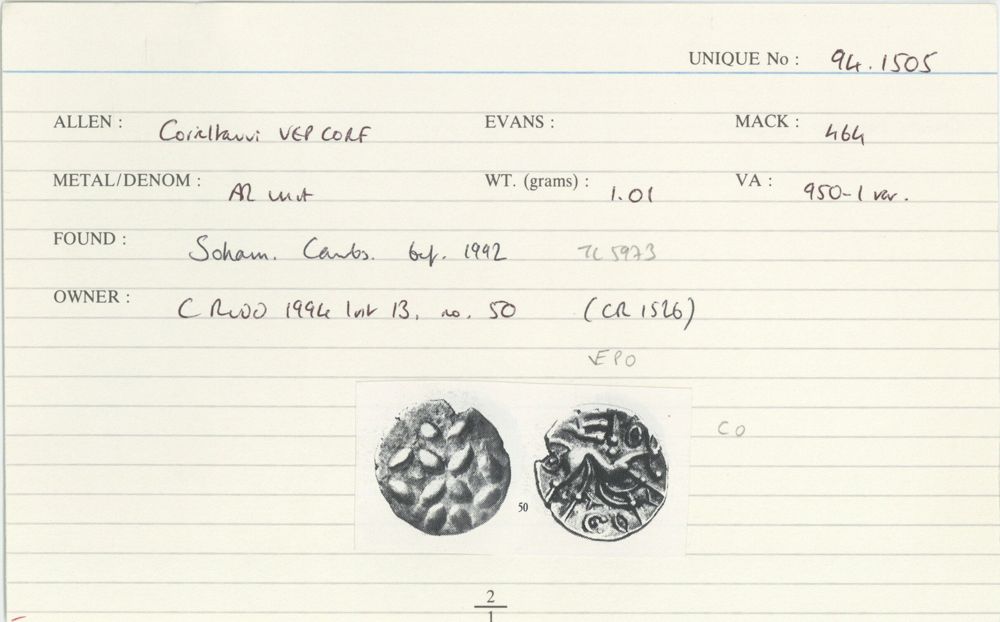 UNIQUE No : 94.1505
ALLEN : Corieltauvi VEP CORF EVANS : MACK : 464
METAL/DENOM : AR unit WT. (grams) : 1.01 VA : 950-1 var.
FOUND : Soham. Cambs. bef. 1992 TC 5973
OWNER : C RUDD 1994 list 13, no. 50 (CR 1526)
VEPO
CO
50
2
1